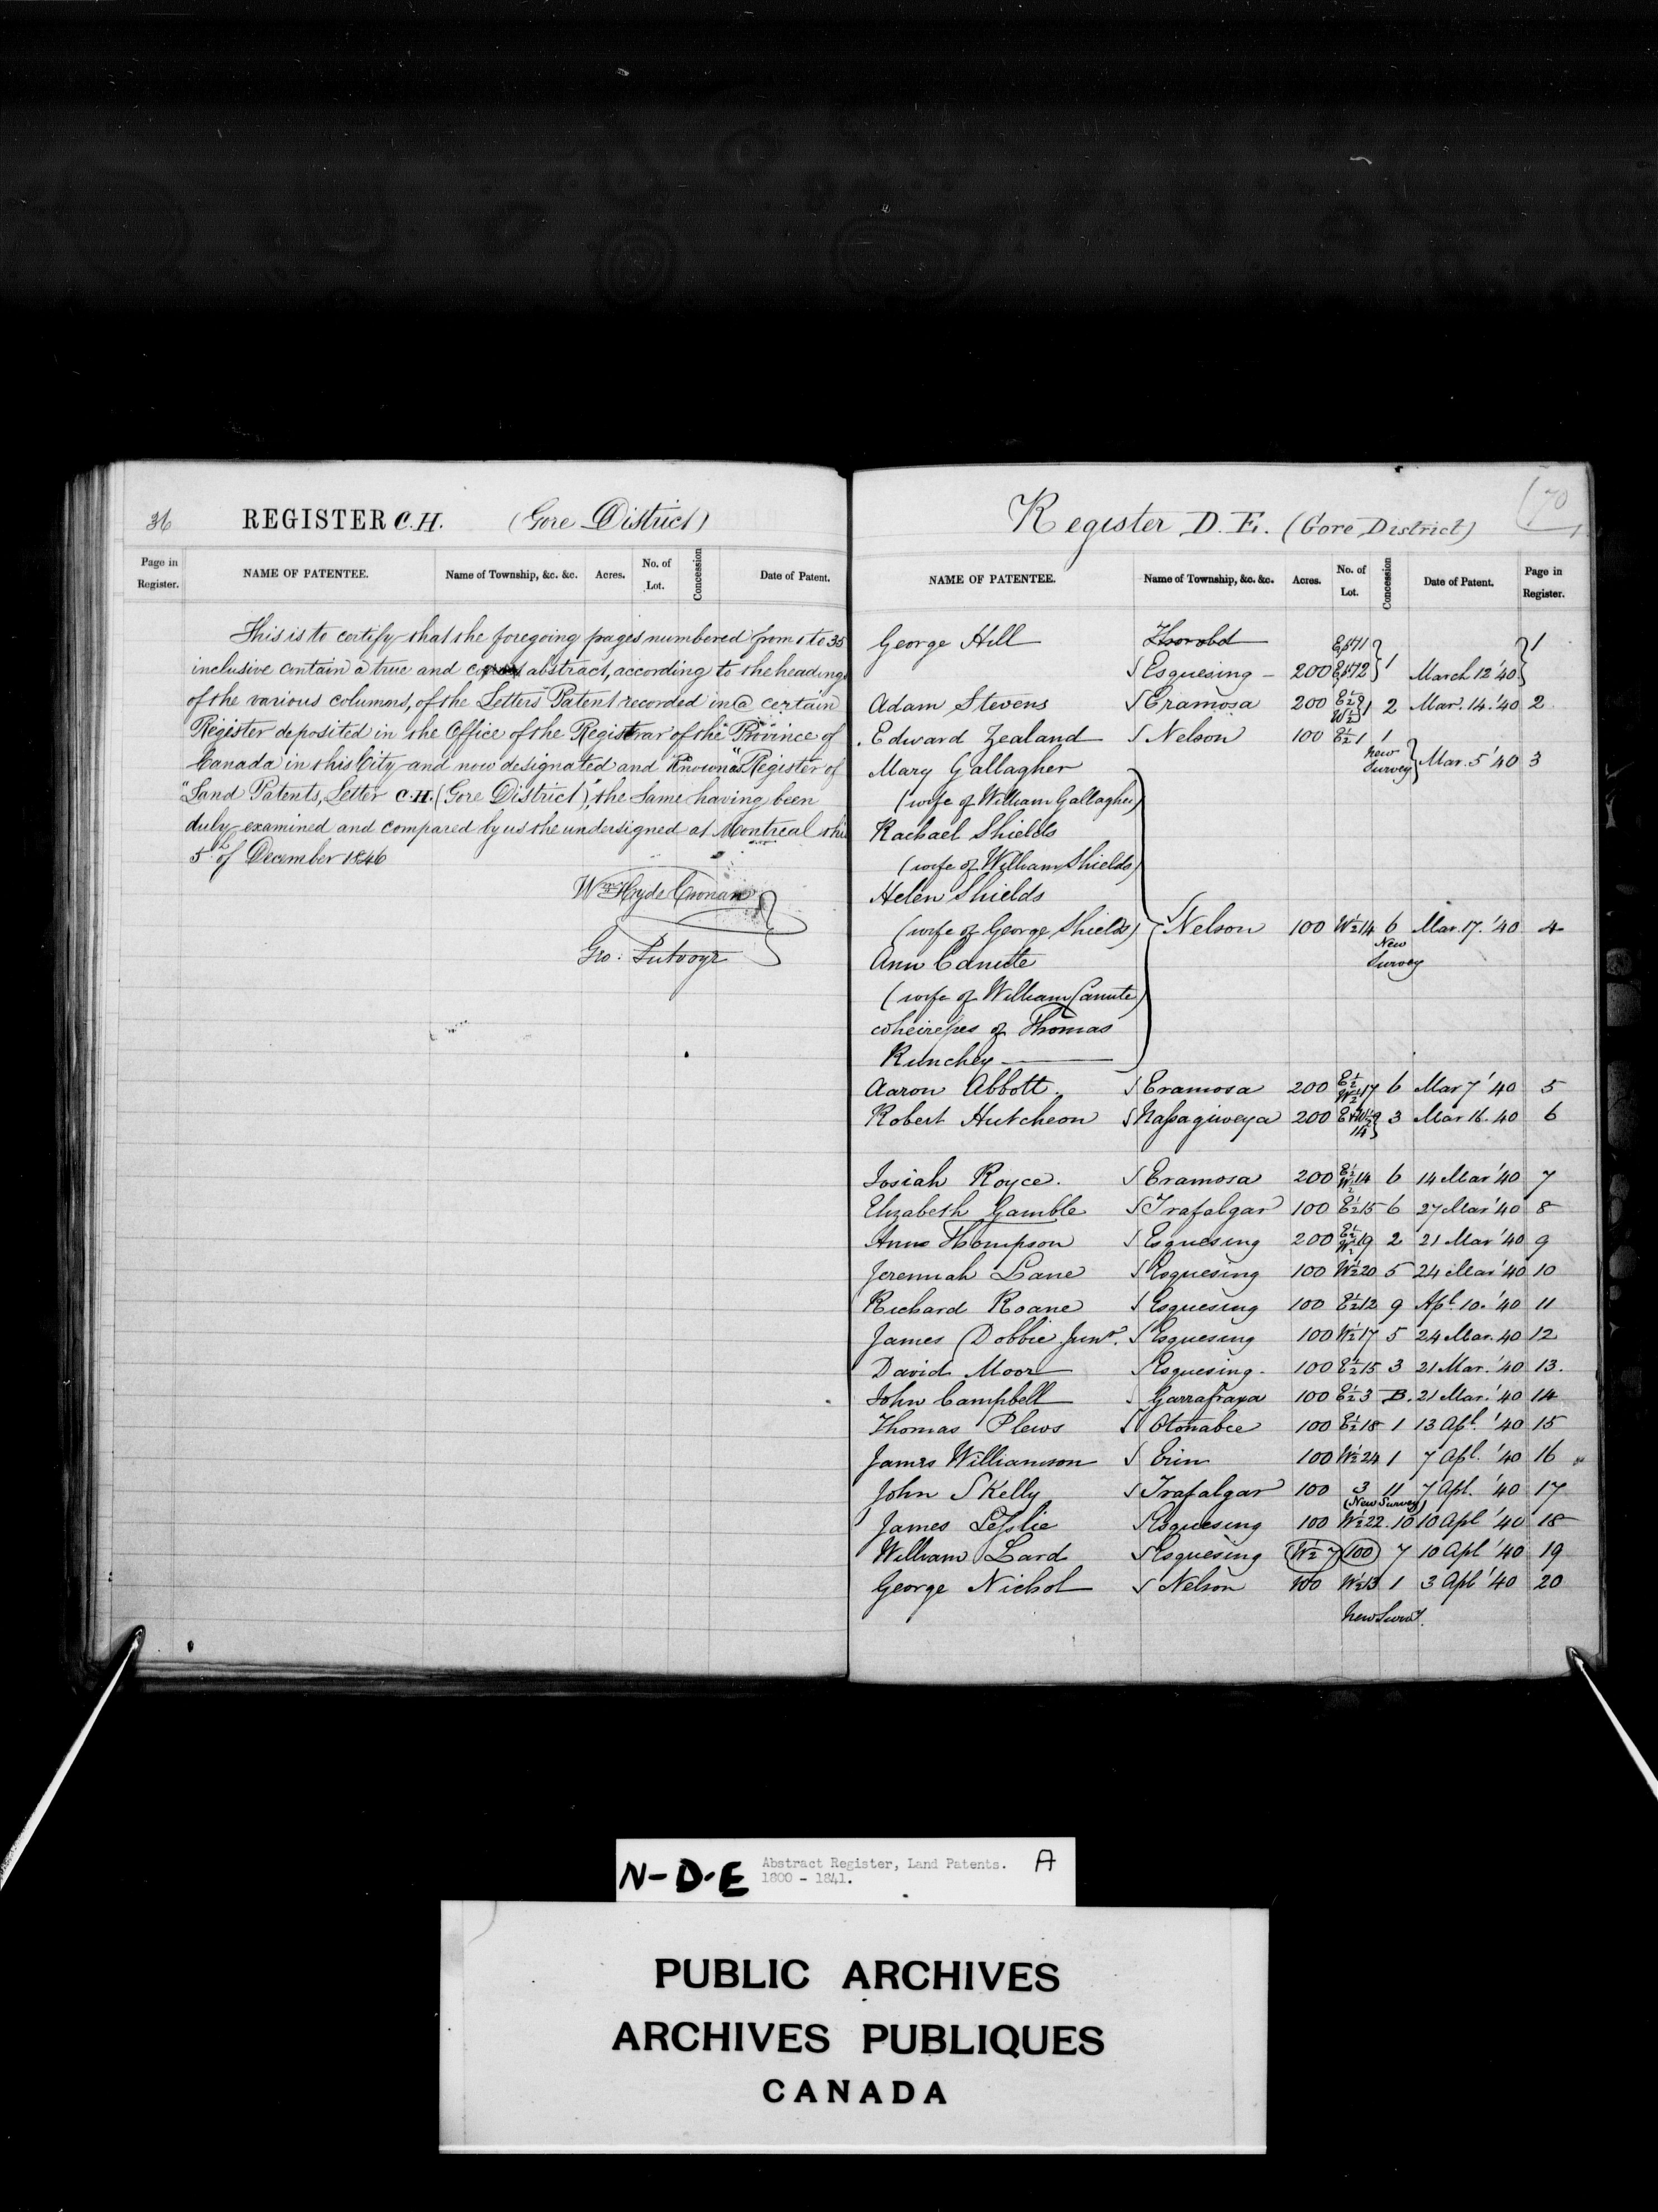 36 REGISTER C.H. (Gore District)
Page in Register. NAME OF PATENTEE. Name of Township, &c. &c. Acres. No. of Lot. Concession Date of Patent.
This is to certify that the foregoing pages numbered from 1 to 35
inclusive contain a true and abstract, according to the headings
of the various columns, of the Letters Patent recorded in a certain
Register deposited in the Office of the Registrar of the Province of
Canada in this City and now designated and Known as "Register of
"Land Patents, Letter C.H. (Gore District)", the same having been
duly examined and compared by us the undersigned at Montreal this
5th of December 1846
Wm Hyde
Geo:
Register D. E. (Gore District) 70
NAME OF PATENTEE. Name of Township, &c. &c. Acres. No. of Lot. Concession Date of Patent. Page in Register.
George Hill Ept 11 1
Esquesing - 200 Ept 12 1 March 12 '40
Adam Stevens Eramosa 200 E½ W½ 1 2 Mar. 14. '40 2
Edward Zealand Nelson 100 E½ 1 1
New Survey Mar. 5 '40 3
Mary Gallagher
(wife of William Gallagher)
Rachael Shields
(wife of William Shields)
Helen Shields
(wife of George Shields) Nelson 100 W½ 14 6 Mar. 17. '40 4
New
Survey
Ann Canute
(wife of William Canute)
coheiresses of Thomas
Runchey
Aaron Abbott. Eramosa 200 E½ W½ 17 6 Mar 7 '40 5
Robert Hutcheon Nassagiweya 200 3 Mar 16. 40 6
Josiah Royce. Eramosa 200 E½ W½ 14 6 14 Mar '40 7
Elizabeth Gamble Trafalgar 100 E½ 15 6 27 Mar '40 8
Anne Thompson Esquesing 200 E½ W½ 19 2 21 Mar '40 9
Jeremiah Lane Esquesing 100 W½ 20 5 24 Mar '40 10
Richard Roane Esquesing 100 E½ 12 9 Apl. 10. '40 11
James Dobbie Junr. Esquesing 100 W½ 17 5 24 Mar. 40 12
David Moor Esquesing. 100 E½ 15 3 21 Mar. '40 13.
John Campbell Garrafraxa 100 E½ 3 B. 21 Mar. '40 14
Thomas Plews Otonabee 100 E½ 18 1 13 Apl. '40 15
James Williamson Erin 100 W½ 24 1 7 Apl. '40 16
John Skelly Trafalgar 100 3 11 7 Apl. '40 17
(New Survey)
James Leslie Esquesing 100 W½ 22. 10 10 Apl '40 18
William Lard Esquesing W½ 7 100 7 10 Apl '40 19
George Nichol Nelson 100 W½ 13 1 3 Apl '40 20
New Survy.
N-D-E Abstract Register, Land Patents. A
1800 - 1841.
PUBLIC ARCHIVES
ARCHIVES PUBLIQUES
CANADA